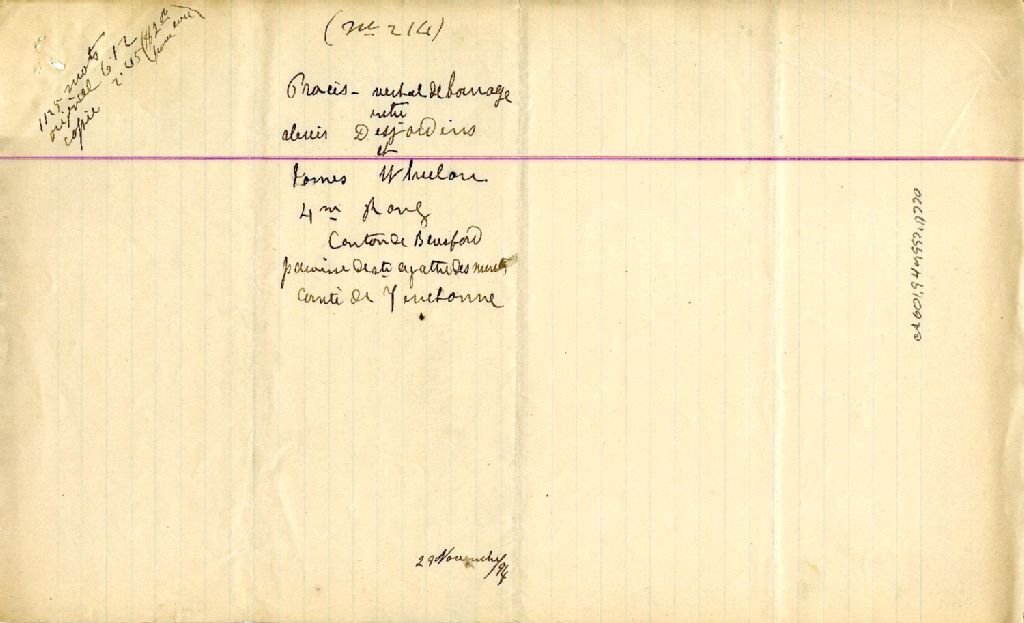 1125 mots
original 6.12
copie 2.45
(No 214)
Procès-verbal de bornage
entre
alexis Desjardins
et
James Whelan
4me Rang
Canton de Beresford
paroisse de Ste agathe des monts
Comté de Terrebonne
29 Novembre/94